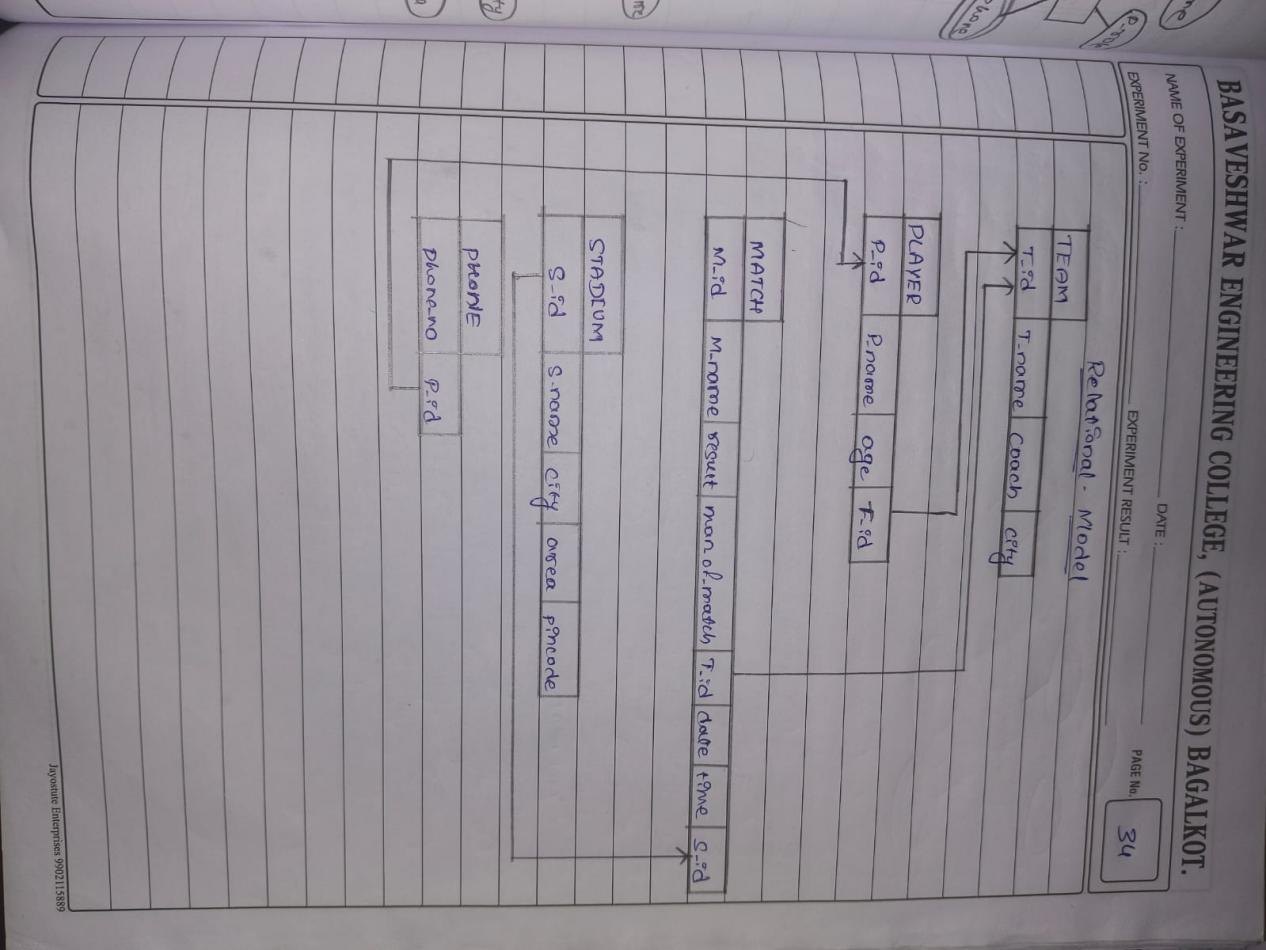 BASAVESHWAR ENGINEERING COLLEGE, (AUTONOMOUS) BAGALKOT.
NAME OF EXPERIMENT : DATE :
EXPERIMENT No. : EXPERIMENT RESULT : PAGE No. 34
Relational - Model
TEAM
T_id T_name Coach city
PLAYER
P_id P_name age T_id
MATCH
M_id M_name result man_of_match T_id date time S_id
STADIUM
S_id S_name city area pincode
PHONE
Phone_no P_id
Jayostute Enterprises 9902115889